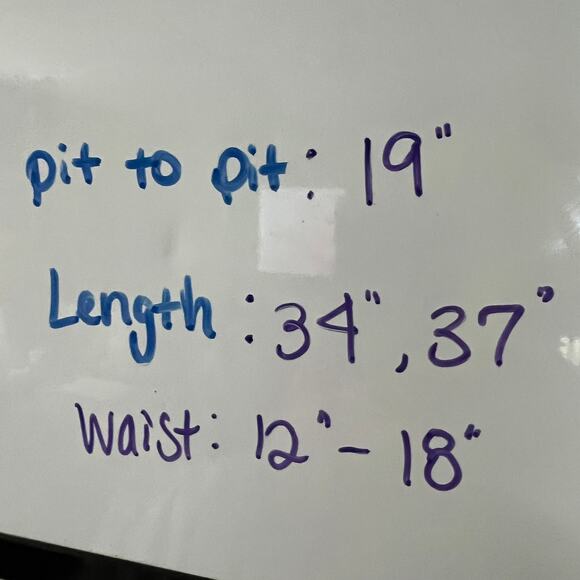 pit to pit: 19"
Length: 34", 37"
Waist: 12" - 18"